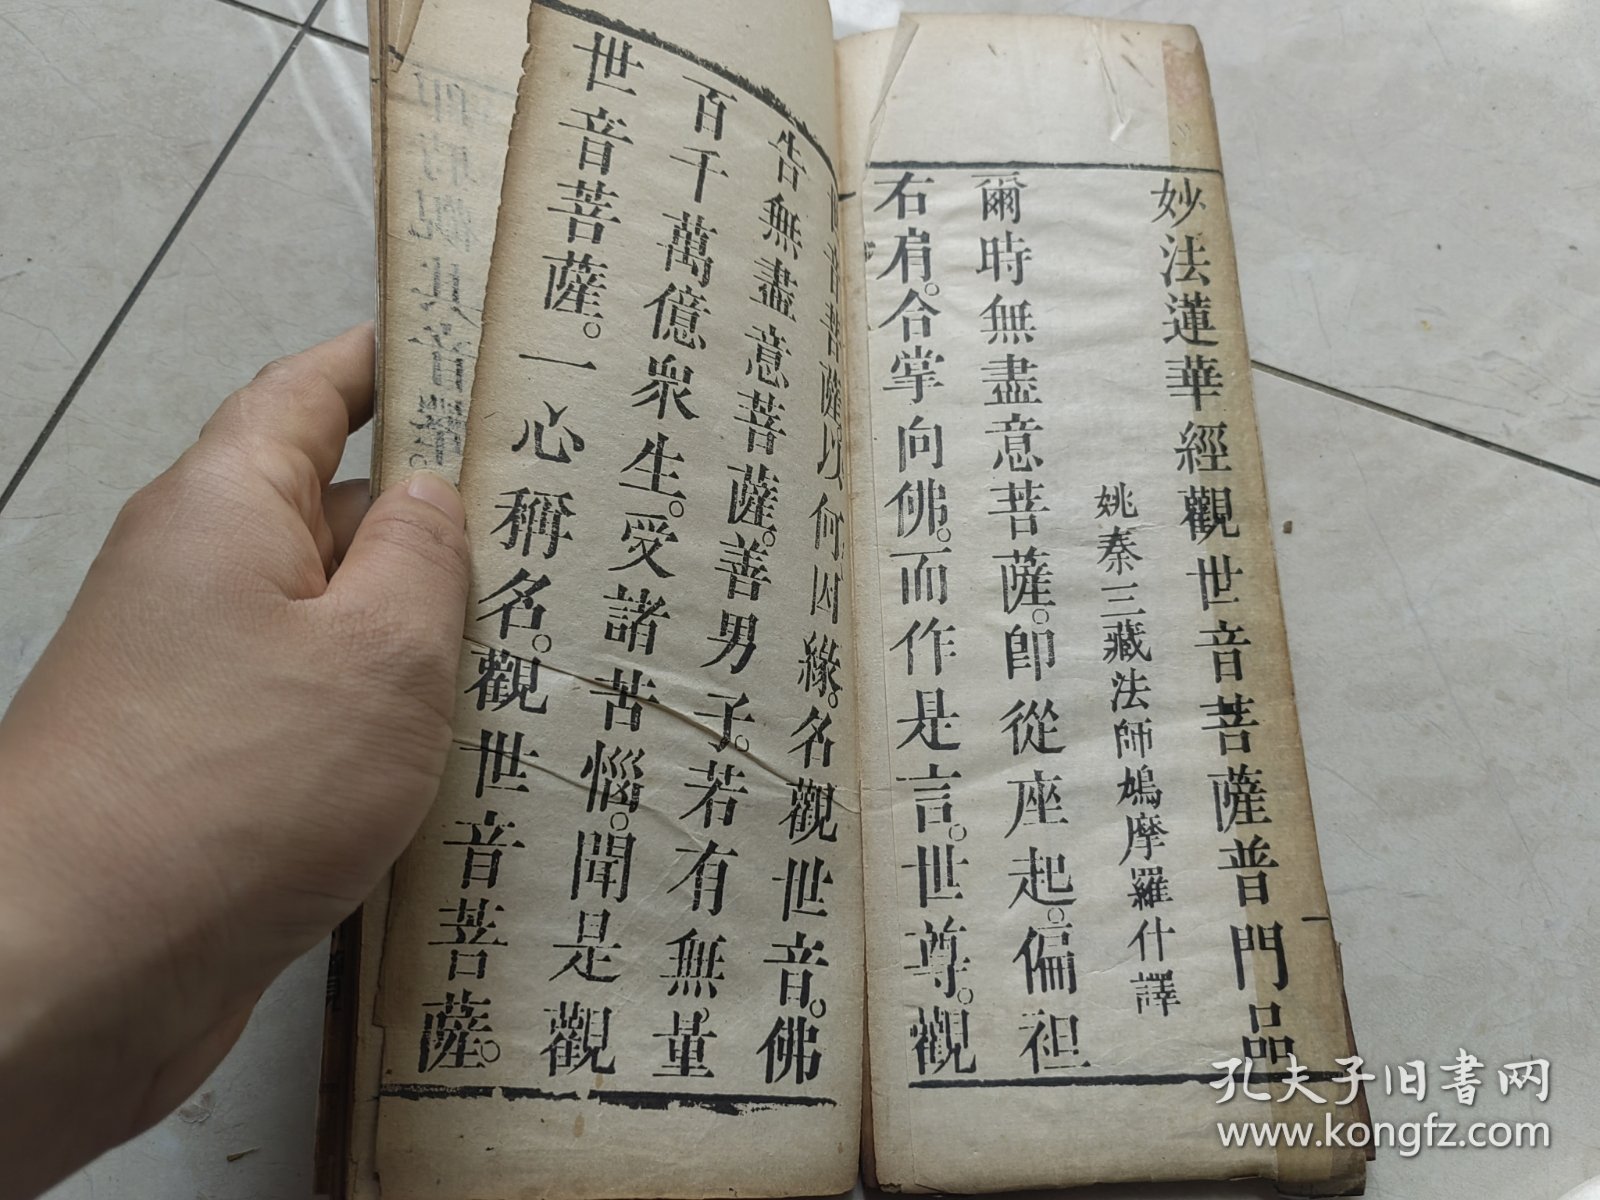 妙法蓮華經觀世音菩薩普門品
姚秦三藏法師鳩摩羅什譯
爾時無盡意菩薩。即從座起。偏袒
右肩。合掌向佛。而作是言。世尊。觀
世音菩薩以何因緣。名觀世音。佛
告無盡意菩薩。善男子。若有無量
百千萬億衆生。受諸苦惱。聞是觀
世音菩薩。一心稱名。觀世音菩薩。
孔夫子旧書网
www.kongfz.com